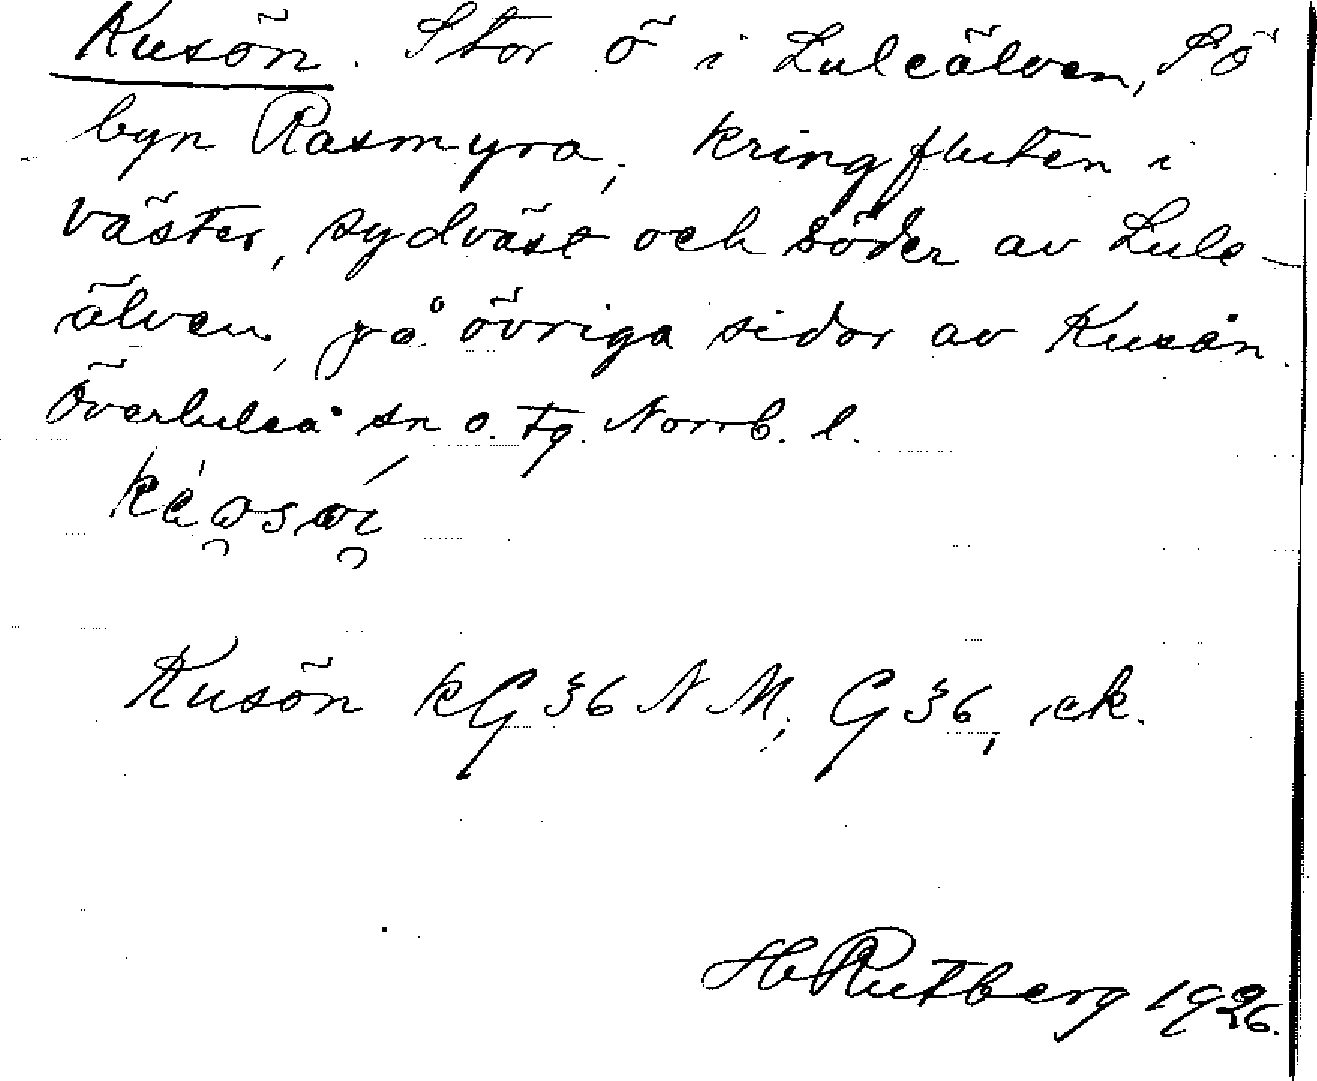 Kusön. Stor ö i Luleälven, SÖ
byn Rasmyra, kringfluten i
väster, sydväst och söder av Lule-
älven, på övriga sidor av Kusån.
Överluleå sn o. tg. Norrb. l.
Kusön KG36 NM, G36, ek.
H Rutberg 1926.